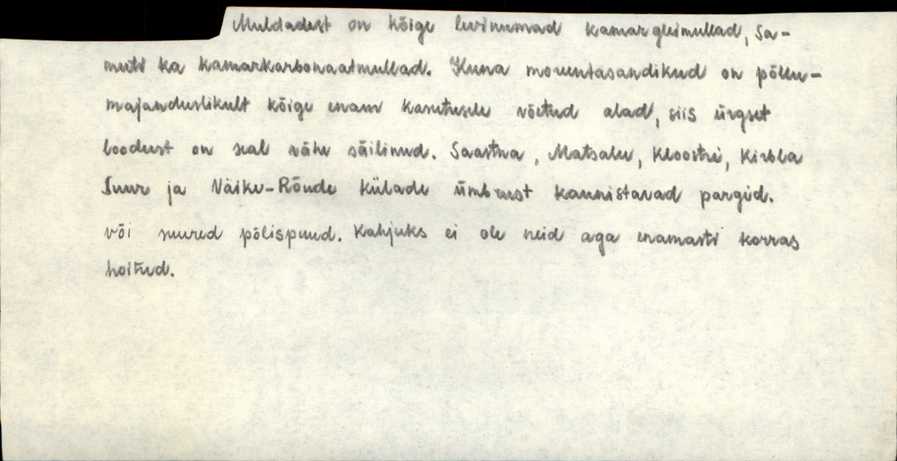 Muldadest on kõige levinumad kamargleimullad, sa-
muti ka kamarkarbonaatmullad. Kuna moreentasandikud on põllu-
majanduslikult kõige enam kasutusele võetud alad, siis ürgset
loodust on seal vähe säilinud. Saastna, Matsalu, Kloostri, Kirbla
Suur ja Väike-Rõude külade ümbrust kaunistavad pargid.
või suured põlispuud. Kahjuks ei ole neid aga enamasti korras
hoitud.